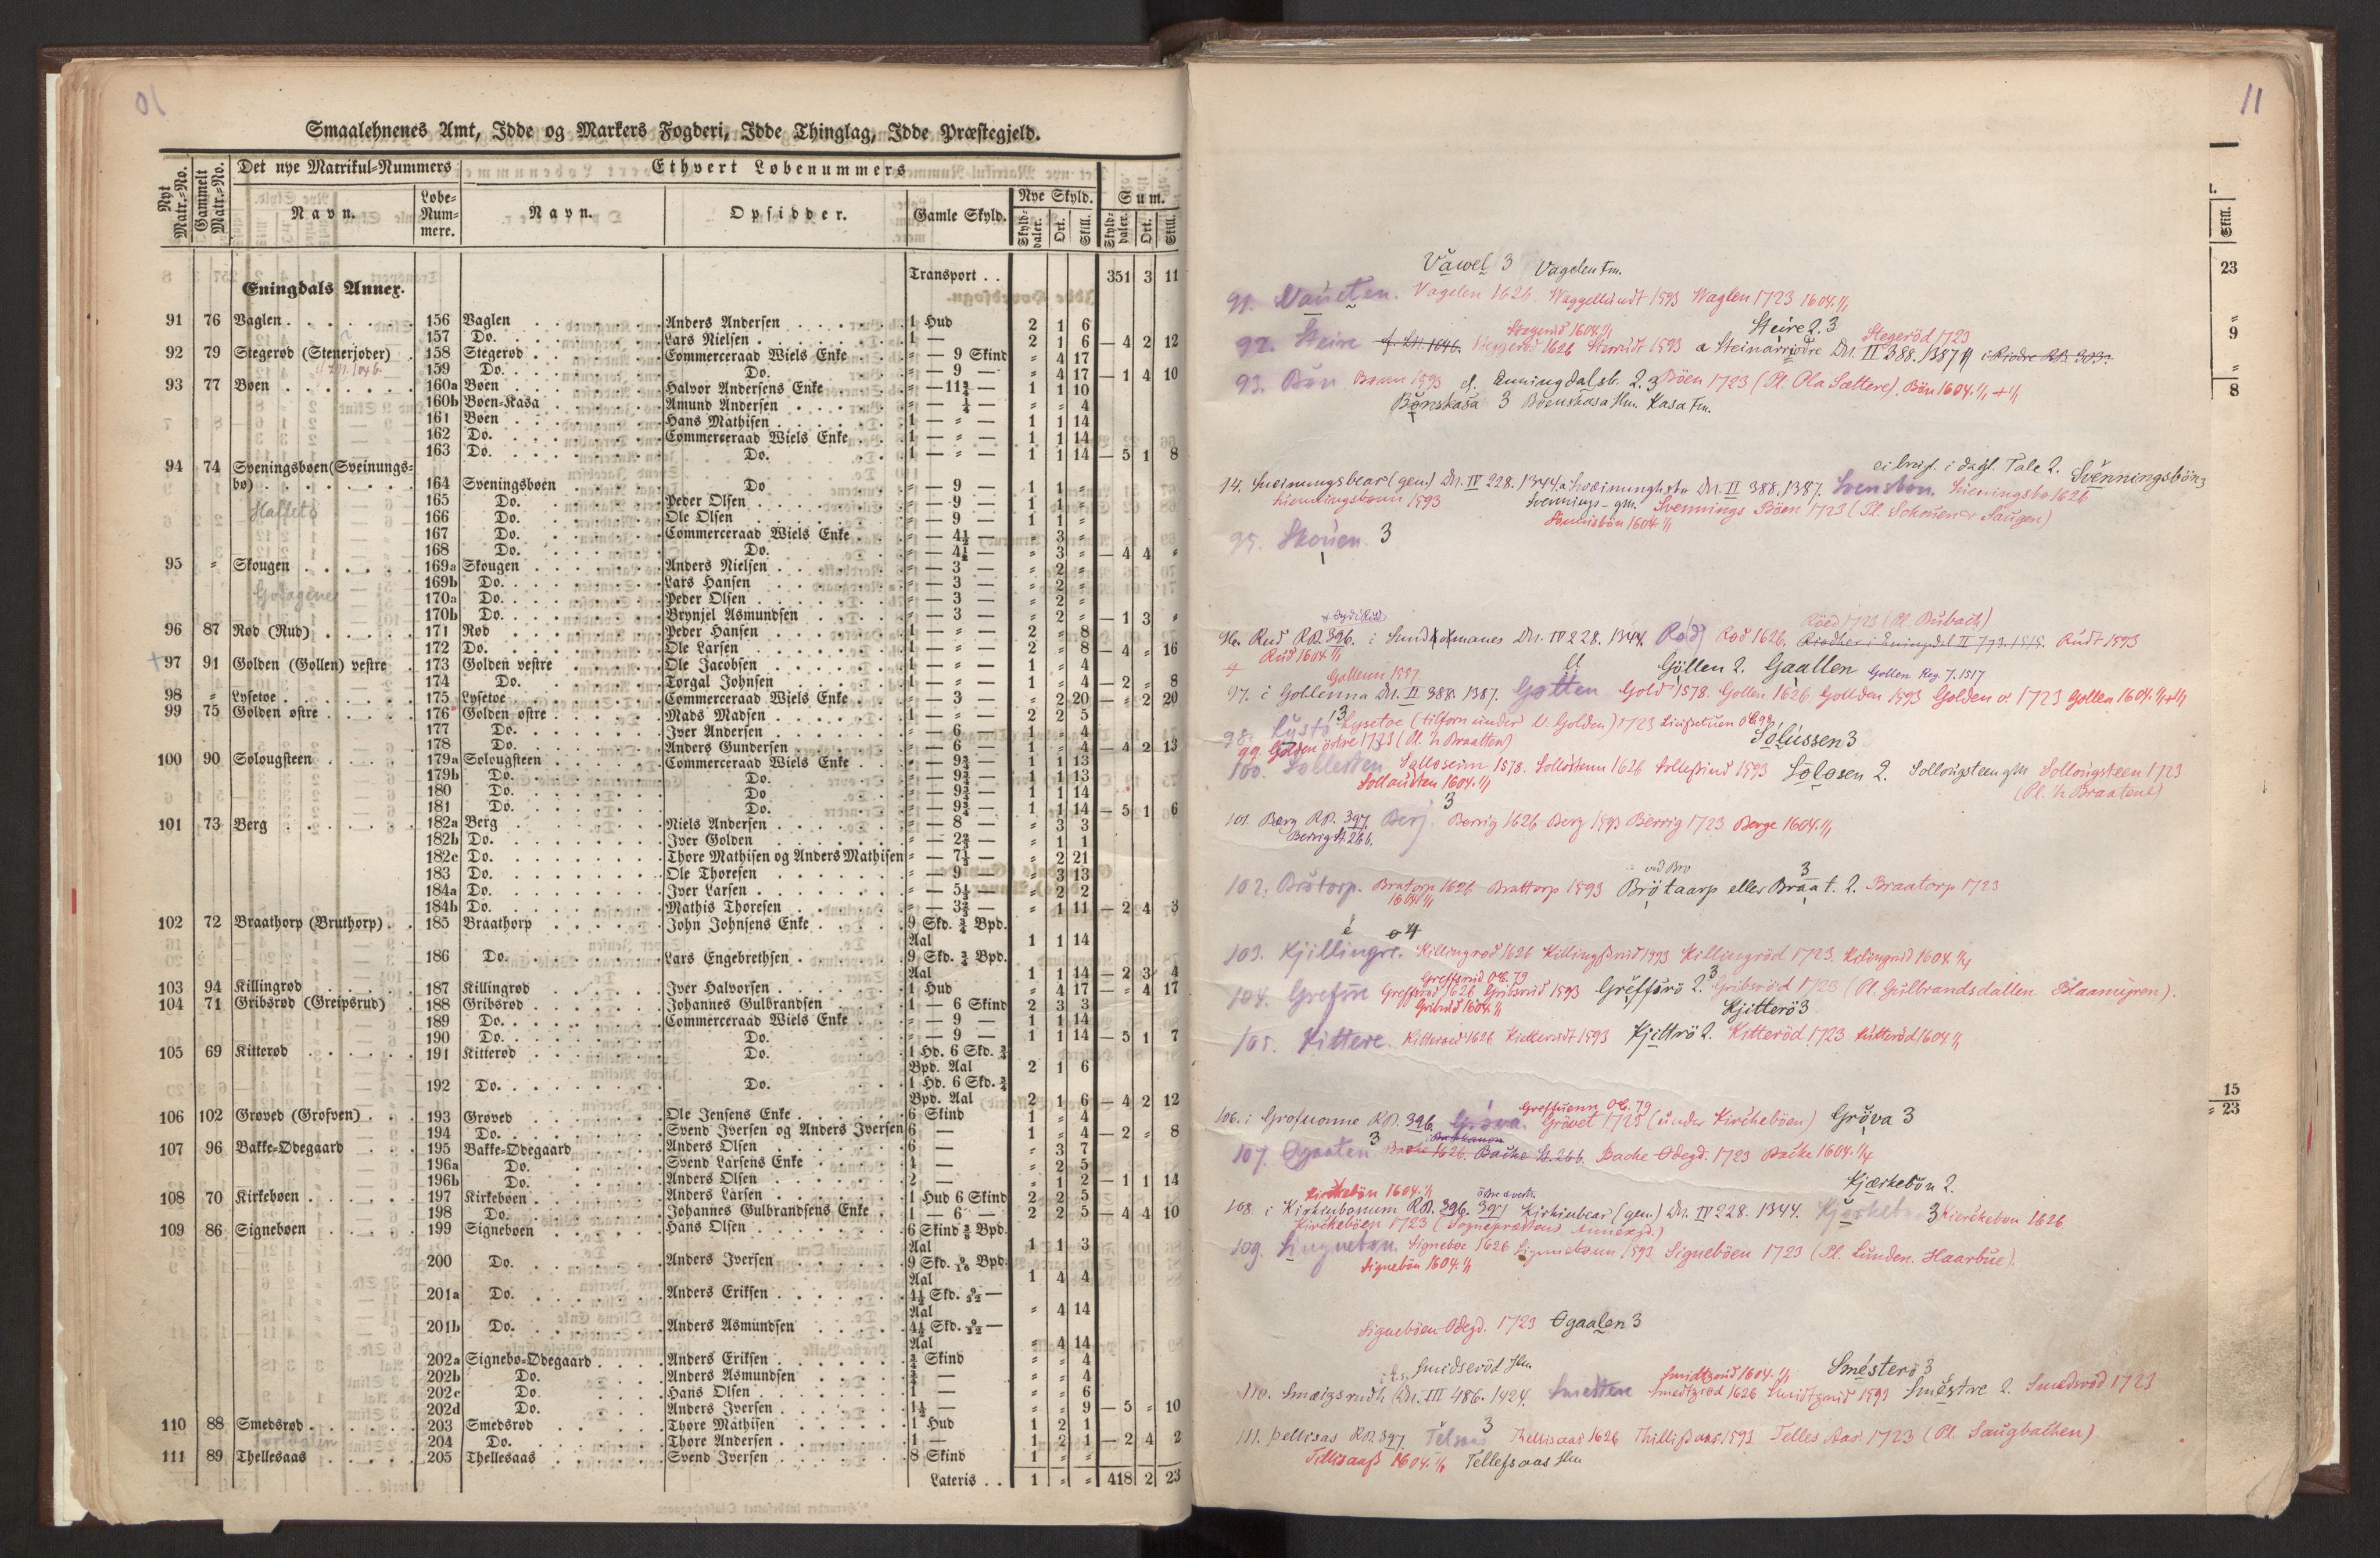 10
Smaalehnenes Amt, Idde og Markers Fogderi, Idde Thinglag, Idde Præstegjeld.
Nyt Matr.-No.
Gammelt Matr.-No.
Det nye Matrikul-Nummers
Navn.
Løbe-Num-mere.
Ethvert Løbenummers
Navn.
Opsidder.
Gamle Skyld.
Nye Skyld.
Skyld-daler. Ort. Skill.
Sum.
Skyld-daler. Ort. Skill.
Transport . . 351 3 11
Eningdals Annex.
91 76 Vaglen 156 Vaglen Anders Andersen 1 Hud 2 1 6
157 Do. Lars Nielsen 1 — 2 1 6 — 4 2 12
92 79 Stegerød (Stenerjoder) 158 Stegerød Commerceraad Wiels Enke " — 9 Skind " 4 17
159 Do. Do. " — 9 — " 4 17 — 1 4 10
93 77 Bøen 160a Bøen Halvor Andersens Enke " — 11¾ — 1 1 10
160b Bøen-Kasa Amund Andersen " — ¼ — " " 4
161 Bøen Hans Mathisen 1 — " — 1 1 14
162 Do. Commerceraad Wiels Enke 1 — " — 1 1 14
163 Do. Do. 1 — " — 1 1 14 — 5 1 8
94 74 Sveningsbøen (Sveinungs-
bø) 164 Sveningsbøen Do " — 9 — 1 1 "
165 Do. Peder Olsen " — 9 — 1 1 "
166 Do. Ole Olsen " — 9 — 1 1 "
167 Do. Commerceraad Wiels Enke " — 4½ — " 3 "
168 Do. Do. " — 4½ — " 3 " — 4 4 "
95 " Skougen 169a Skougen Anders Nielsen " — 3 — " 2 "
169b Do. Lars Hansen " — 3 — " 2 "
170a Do. Peder Olsen " — 3 — " 2 "
170b Do. Brynjel Asmundsen " — 3 — " 2 " — 1 3 "
96 87 Rød (Rud) 171 Rød Peder Hansen 1 — " — 2 " 8
172 Do. Ole Larsen 1 — " — 2 " 8 — 4 " 16
97 91 Golden (Gollen) vestre 173 Golden vestre Ole Jacobsen 1 — " — 1 " 4
174 Do. Torgal Johnsen 1 — " — 1 " 4 — 2 " 8
98 " Lysetoe 175 Lysetoe Commerceraad Wiels Enke " — 3 — " 2 20 — " 2 20
99 75 Golden østre 176 Golden østre Mads Madsen 1 — " — 2 2 5
177 Do. Iver Andersen " — 6 — 1 " 4
178 Do. Anders Gundersen " — 6 — 1 " 4 — 4 2 13
100 90 Solougsteen 179a Solougsteen Commerceraad Wiels Enke " — 9¾ — 1 1 13
179b Do. Do. " — 9¾ — 1 1 13
180 Do. Do " — 9¾ — 1 1 14
181 Do. Do. " — 9¾ — 1 1 14 — 5 1 6
101 73 Berg 182a Berg Niels Andersen " — 8 — " 3 3
182b Do. Iver Golden " — 2⅔ — " 1 1
182c Do. Thore Mathisen og Anders Mathisen " — 7⅓ — " 2 21
183 Do. Ole Thoresen " — 9 — " 3 13
184a Do. Iver Larsen " — 5⅓ — " 2 2
184b Do. Mathis Thoresen " — 3⅔ — " 1 11 — 2 4 3
102 72 Braathorp (Bruthorp) 185 Braathorp John Johnsens Enke 9 Skd. ¾ Bpd.
Aal 1 1 14
186 Do. Lars Engebrethsen 9 Skd. ¾ Bpd.
Aal 1 1 14 — 2 3 4
103 94 Killingrød 187 Killingrød Iver Halvorsen 1 Hud " 4 17 — " 4 17
104 71 Gribsrød (Greipsrud) 188 Gribsrød Johannes Gulbrandsen 1 — 6 Skind 2 3 3
189 Do. Commerceraad Wiels Enke " — 9 — 1 1 14
190 Do. Do. " — 9 — 1 1 14 — 5 1 7
105 69 Kitterød 191 Kitterød Do. 1 Hd. 6 Skd. ¾
Bpd. Aal 2 1 6
192 Do. Do. 1 Hd. 6 Skd. ¾
Bpd. Aal 2 1 6 — 4 2 12
106 102 Grøved (Grofven) 193 Grøved Ole Jensens Enke 6 Skind 1 " 4
194 Do. Svend Iversen og Anders Iversen 6 — 1 " 4 — 2 " 8
107 96 Bakke-Ødegaard 195 Bakke-Ødegaard Anders Olsen 6 — " 3 7
196a Do. Svend Larsens Enke 4 — " 2 5
196b Do. Anders Olsen 2 — " 1 2 — 1 1 14
108 70 Kirkebøen 197 Kirkebøen Anders Larsen 1 Hud 6 Skind 2 2 5
198 Do. Johannes Gulbrandsens Enke 1 — 6 — 2 2 5 — 4 4 10
109 86 Signebøen 199 Signebøen Hans Olsen 6 Skind ⅜ Bpd.
Aal 1 1 3
200 Do. Anders Iversen 9 Skd. 9/16 Bpd.
Aal 1 4 4
201a Do. Anders Eriksen 4½ Skd. 9/32 —
Aal " 4 14
201b Do. Anders Asmundsen 4½ Skd. 9/32 —
Aal " 4 14
202a Signebø-Ødegaard Anders Eriksen ¾ Skind " " 4
202b Do. Anders Asmundsen ¾ — " " 4
202c Do. Hans Olsen 1 — " " 6
202d Do. Anders Iversen 1½ — " " 9 — 5 " 10
110 88 Smedsrød 203 Smedsrød Thore Mathisen 1 Hud 1 2 1
204 Do. Thore Andersen 1 — 1 2 1 — 2 4 2
111 89 Thellesaas 205 Thellesaas Svend Iversen 8 Skind 1 " "
Lateris . . 1 " " 418 2 23
11
Skill.
23
" 9
" 8
15
" 23
Vawel 3 Vagelen Fm.
91. Vagelen 1626. Waggellundt 1593 Waglen 1723 1604. 1/1
Stegerød 1604 1/1 Steire 2. 3 Stegeröd 1723
92. Steire Steggerød 1626 1593 a Steinarriodre DN. II 388. 1387
93. Bön Bonn 1593 cf. Enningdalsb. 2. 3 Böen 1723 (Pl. Ola Sættere). Bön 1604. 1/1 + 1/1
Bönskasa 3 Böenskasa Hm. Kasa Fm.
ei brugl. i dagl. Tale 2. Svenningsbön 3
94. Sueinungsbear (gen.) DN. IV 228. 1344. DN. II 388. 1387. Svensbön. Sueningsbo 1626
1593 Svennings- gM. Svennings Böen 1723 (Pl. Schouen & Saugen)
1604 1/1
95. Skouen. 3
Röed 1723 (Pl. Bubach)
96. Rud RB. 396. DN. IV 228. 1344. Rød Rød 1626. Rudt 1593
Rud 1604 1/1
Göllen 2. Gaallen Gollen Reg. 7. 1517
97. i Gollenna DN. II 388. 1387. Gold 1578. Gollen 1626. Gollden 1593 Golden v. 1723 Gollen 1604. 1/1 + 1/1
98. Lysto 3 Lysetoe (tilforn under V. Golden) 1723
99. Golden östre 1723 (Pl. 1/2 Braatten) Solussen 3
100. Solloseim 1578. Sollostenn 1626 1593 Solosen 2. Sollougsteen gM Sollougsteen 1723
Sollausten 1604. 1/1 (Pl. 1/2 Braatene)
101. Berg RB. 397. Berj. 3 Berrig 1626 Berg 1593 Bierrig 1723 Berge 1604. 1/1
Berrig St. 266.
ved Bro 3
102. Brötorp. Bratorp 1626 Brattorp 1593 Brötaarp eller Braat. 2. Braatorp 1723
1604 1/1
103. Kjillingre. Killingrød 1626 1593 Killingröd 1723. 1604. 1/1
104. Greffsrud 1626 Gribsrud 1593 Greffsrö 2. 3 Gribsröd 1723 (Pl. Gulbrandsdallen. Blaamyren).
Gribsrud 1604. 1/1 Kjitterö 3
105. Kittere. 1626 1593 Kjittrö 2. Kitteröd 1723 1604 1/1
Greffuenn OB. 79
106. i Grofuonne RB. 396. Gröva. Grövet 1723 (under Kirchebøen) Gröva 3
107. Ogaaten 3 Bache Ödegd. 1723 Backe 1604. 1/4
Kjærkebön 2.
108. i Kirkiubonum RB. 396. 397 Kirkiubear (gen.) DN. IV 228. 1344. 3 Kierckebon 1626
Kirckebøen 1723
109. Signeboe 1626 1593 Signebøen 1723 (Pl. Lunden. Haarbue).
Signebön 1604. 1/1
Signebøen Ödegd. 1723 Ogaalen 3
Smidserød Hm. 1604. 1/1 Smésterö 3
110. Smæizsrudh DN. III 486. 1424. Smedtzrød 1626 1593 Sméstre 2. Smedsröd 1723
111. Þellisas RB. 397. 3 Thellisaas 1626 1593 Telles Aas 1723 (Pl. Saugbakken)
1604. 1/1 Tellefsaas Hm